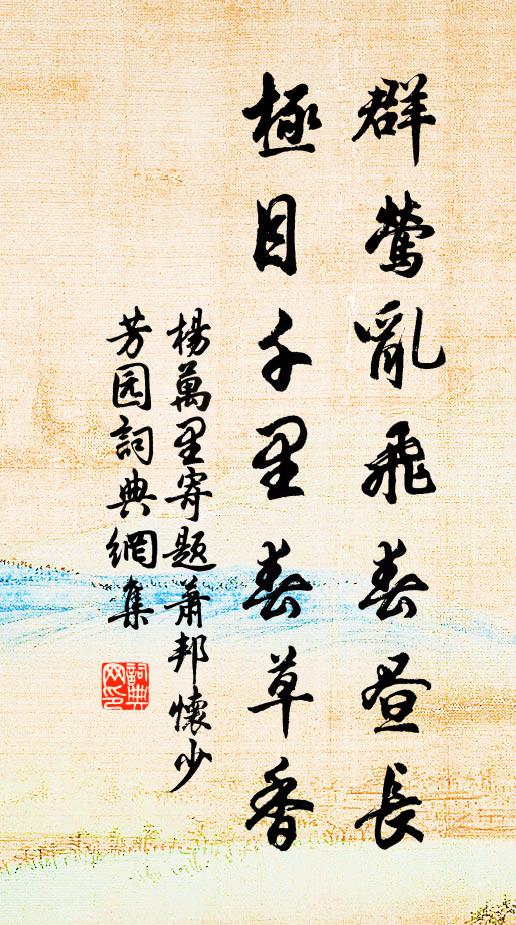 群鶯亂飛春昼長
極目千里春草香
楊萬里寄題蕭邦懷少
芳园詞典網集
詞典網印